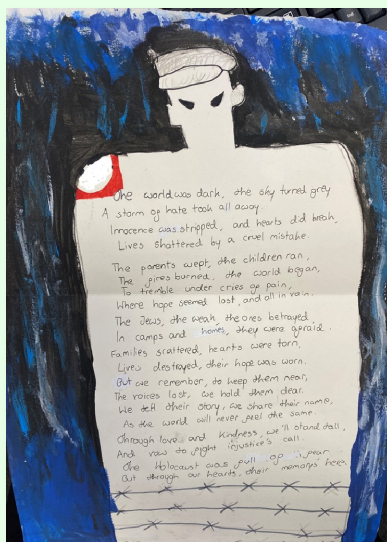 The world was dark, the sky turned grey
A storm of hate took all away.
Innocence was stripped, and hearts did break,
Lives shattered by a cruel mistake.
The parents wept, the children ran,
The fires burned. the world began,
To tremble under cries of pain,
Where hope seemed lost, and all in vain.
The Jews, the weak, the ones betrayed
In camps and homes, they were afraid.
Families scattered, hearts were torn,
Lives destroyed, their hope was worn.
But we remember, to keep them near,
The voices lost, we hold them dear.
We tell their story, we share their name,
As the world will never feel the same.
Through love and kindness, we'll stand tall,
And vow to fight injustice's call.
The Holocaust was full of fear
But through our hearts, their memory's here.